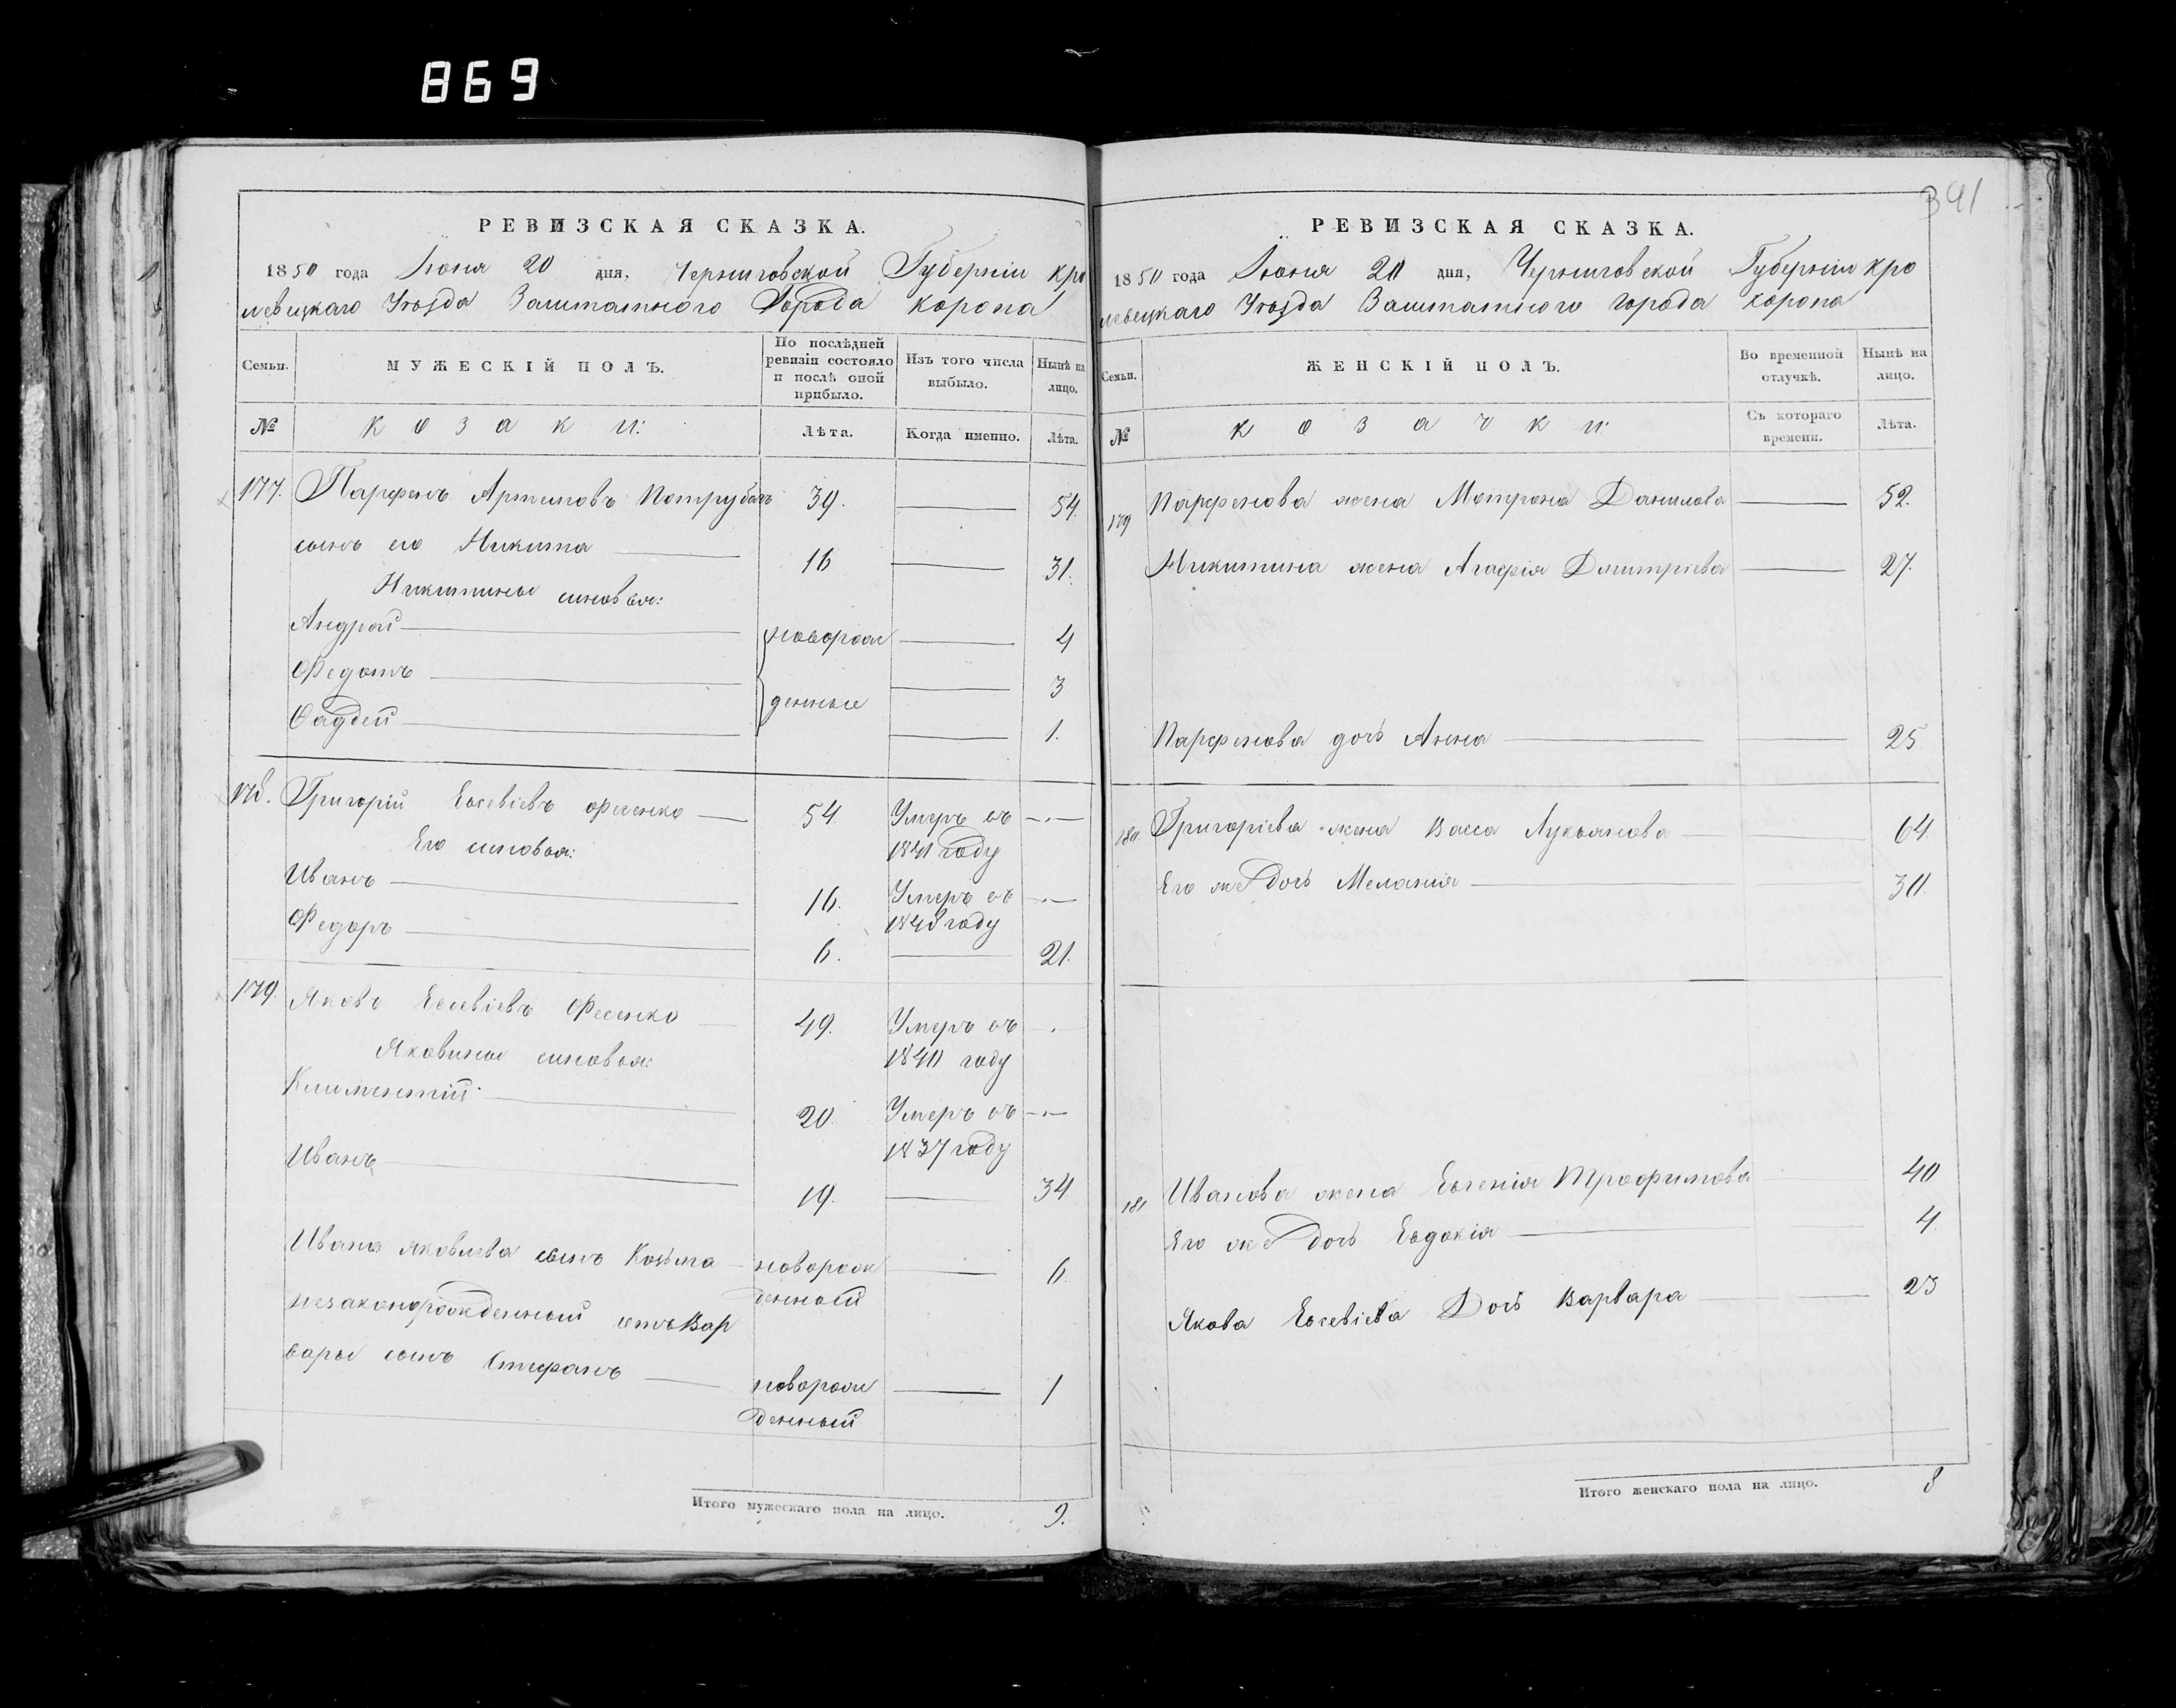 869
РЕВИЗСКАЯ СКАЗКА.
1850 года Июня 20 дня, Черниговской Губерніи Кро
левецкаго Уѣзда Заштатного Города Коропа
Семьи.
МУЖЕСКІЙ ПОЛЪ.
По послѣдней ревизіи состояло и послѣ оной прибыло.
Изъ того числа выбыло.
Нынѣ на лицо.
№
Козаки:
Лѣта.
Когда именно.
Лѣта.
177. Парфенъ Артемовъ 39. 54.
сынъ его Никита 16 31.
Никитины сыновья:
Андрей новорож 4
Федотъ 3
денные
Фадѣй 1.
178. Григорій Евсевіевъ Фесенко 54 Умеръ въ
1841 году
Его сыновья:
Иванъ 16. Умеръ въ
1848 году
Федоръ 6. 21.
179. Яковъ Евсевіевъ Фесенко 49. Умеръ въ
1840 году
Яковины сыновья:
Климентій 20. Умеръ въ
1837 году
Иванъ 19. 34
Ивана Яковлева сынъ Козьма новорож 6.
денный
незаконорожденный отъ Вар
вары сынъ Стефанъ новорож 1
денный
Итого мужескаго пола на лицо. 9.
341
РЕВИЗСКАЯ СКАЗКА.
1850 года Июня 20 дня, Черниговской Губерніи Кро
левецкаго Уѣзда Заштатного города Коропа
Семьи.
ЖЕНСКІЙ ПОЛЪ.
Во временной отлучкѣ.
Нынѣ на лицо.
№
Козачки:
Съ котораго времени.
Лѣта.
179 Парфенова жена Мотрона Данилова 52.
Никитина жена Агафія Дмитріева 27.
Парфенова дочь Анна 25
180 Григоріева жена Васса Лукьянова 64.
Его же дочь Меланія 30.
181 Иванова жена Евгенія Трофимова 40
Его же дочь Евдокія 4.
Якова Евсевіева дочь Варвара 23
Итого женскаго пола на лицо. 8